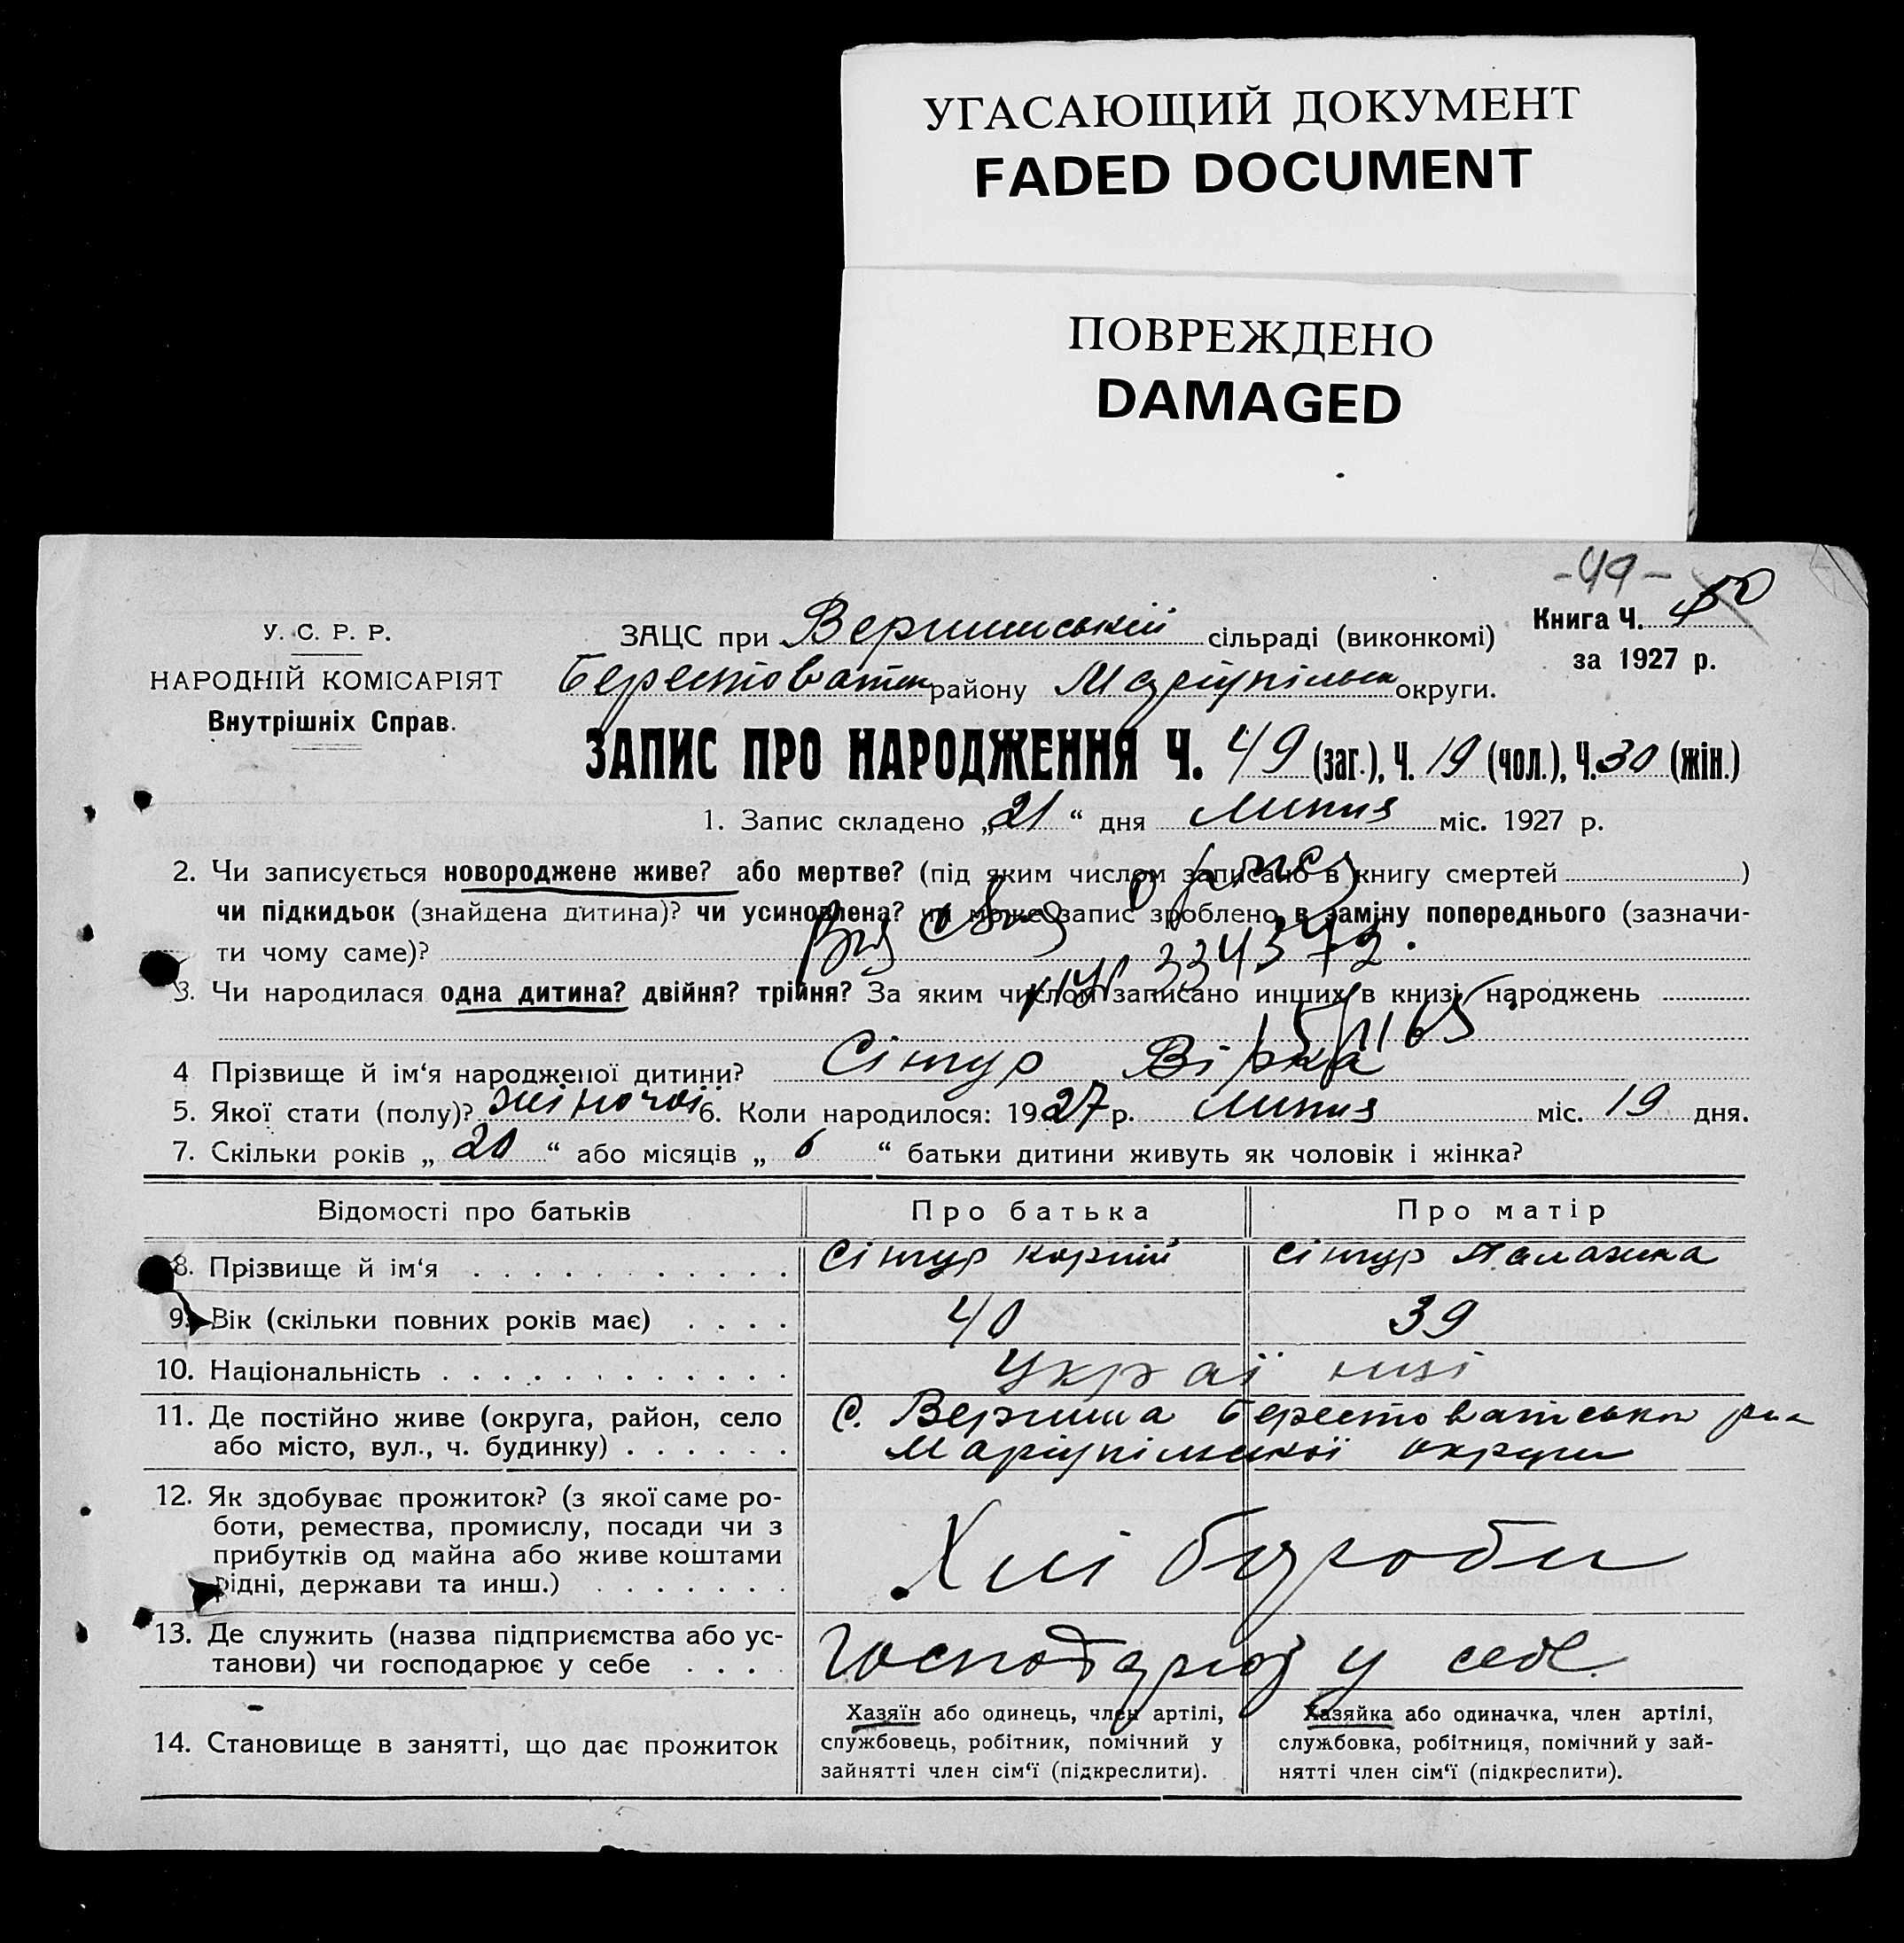 УГАСАЮЩИЙ ДОКУМЕНТ
FADED DOCUMENT
ПОВРЕЖДЕНО
DAMAGED
-49-
У. С. Р. Р.
НАРОДНІЙ КОМІСАРІЯТ
Внутрішніх Справ.
Книга Ч.
за 1927 р.
ЗАЦС при Вершинській сільраді (виконкомі)
Берестоватськ району Маріупільськ округи.
ЗАПИС ПРО НАРОДЖЕННЯ Ч. 49 (заг.), Ч. 19 (чол.), Ч. 30 (жін.)
1. Запис складено „21“ дня Липня міс. 1927 р.
2. Чи записується новороджене живе? або мертве? (під яким числом записано в книгу смертей )
чи підкидьок (знайдена дитина)? чи усиновлена? чи може запис зроблено в заміну попереднього (зазначи-
ти чому саме)?
334372.
3. Чи народилася одна дитина? двійня? трійня? За яким числом записано инших в книзі народжень
4 Прізвище й ім‘я народженої дитини? Сітур Вірка
5. Якої статі (полу)? жіночої 6. Коли народилося: 1927 р. Липня міс. 19 дня.
7. Скільки років „ 20 “ або місяців „ 6 “ батьки дитини живуть як чоловік і жінка?
Відомості про батьків Про батька Про матір
8. Прізвище й ім‘я Сітур Корній Сітур Палажка
9. Вік (скільки повних років має) 40 39
10. Національність Українці
11. Де постійно живе (округа, район, село
або місто, вул., ч. будинку)
с. Вершина Берестоватського р-на
Маріупільської округи
12. Як здобуває прожиток? (з якої саме ро-
боти, ремества, промислу, посади чи з
прибутків од майна або живе коштами
рідні, держави та инш.)
Хлібороби
13. Де служить (назва підприємства або ус-
танови) чи господарює у себе
Господарює у себе.
14. Становище в занятті, що дає прожиток
Хазяїн або одинець, член артілі,
службовець, робітник, помічний у
зайнятті член сім‘ї (підкреслити).
Хазяйка або одиначка, член артілі,
службовка, робітниця, помічний у зай-
нятті член сім‘ї (підкреслити).